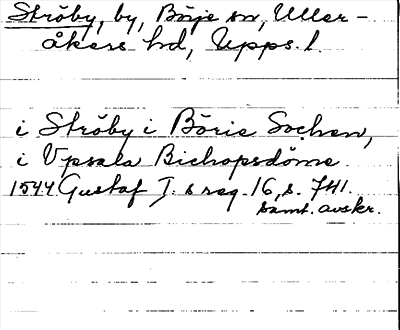 Ströby, by, Börje sn, Uller-
åkers hd, Upps. l.
i Ströby i Börie Sochen,
i Vpsala Bichopsdöme
1544 Gustaf I.s reg. 16, s. 741.
samt. avskr.